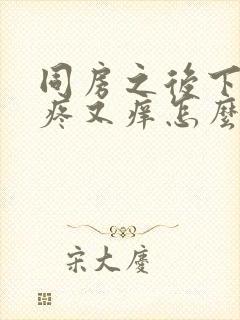 同房之後下
疼又痒怎麼
宋大慶